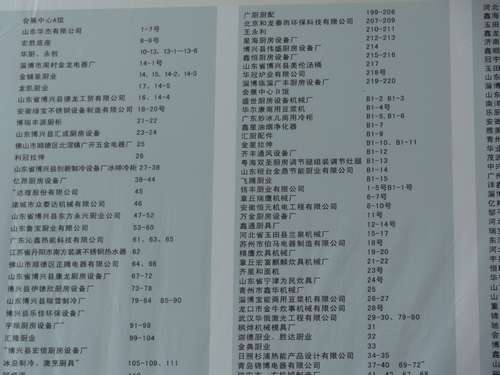 会展中心A馆
山东华杰有限公司 1-7号
宏胜底座 8-9号
华厨、永创 10-13、13-1-13-6
淄博市周村金龙电器厂 14-1号
金辅泉厨业 14、15、14-2、14-3
龙凯厨业 17、14-5
山东省博兴县德龙工贸有限公司 16、14-4
安徽绿宝不锈钢设备制造有限公司 18-20号
博瑞丰源橱柜 21-22
山东博兴县汇成厨房设备 23-24
佛山市顺德区北滘镇广开五金电器厂 25
利冠拉伸 26
山东省博兴县创新制冷设备厂冰坤冷柜 27-38
亿昂厨房设备厂 39-44
"达煌股份有限公司 45
诸城市众泰达机械有限公司 46
山东省博兴县东方永兴厨业公司 47-52
山东鲁宝厨业有限公司 53-60
广东沁鑫热能科技有限公司 61、63、65
江苏省丹阳市南方宏满不锈钢热水器 62
佛山市顺德区正腾电器有限公司 64、66
山东省博兴县康龙厨房设备厂 67-72
山东博兴伊德欣厨房设备厂 73-78
山东博兴县瑞雪制冷厂 79-84 85-90
博兴县乐佳环保设备厂
宇翔厨房设备厂" 91-98
汇隆厨业 99-104
"博兴县宏信厨房设备厂
冰岛制冷、澳烹厨具" 105-109、111
广厨厨配 199-206
北京和龙泰尚环保科技有限公司 207-209
王永利 210-211
星海厨房设备厂 212-213
博兴县伟盛厨房设备厂 214
鑫恒厨房设备厂 215-216
山东省博兴县美伦汤桶 217
华冠炉业有限公司 218号
淄博临淄广丰厨房设备厂 219-220
会展中心B馆
盛世厨房设备机械厂 B1-2
华尔康商用豆浆机 B1-3、B1-4
广东妙冰儿商用冷柜 B1-5、B1-6、B1-7
鑫星油烟净化器 B1-8
汇厨配件 B1-9
金星拉伸 B1-10、B1-11
齐丰通风设备厂 B1-12
粤海双圣厨房调节腿组装调节灶腿 B1-13
山东桓台金鼎节能厨业有限公司 B1-14
飞腾厨业 B1-15
恒丰厨业有限公司 1-5号B1-1号
章丘瑞鹰机械厂 6-7号
安徽恒元机电工程有限公司 8-10号
万金厨房设备厂 11号
鑫通厨具厂 12-14号
河北省玉田县兰泉机械厂 15-17号
苏州市伯马电器制造有限公司 18号
精鹰炊具厂 19-20号
章丘宏喜麒麟炊具机械厂 21-22号
齐星和面机 23号
山东省宁津方民炊具厂 24号
青州市鑫华机械厂 25号
淄博宝能商用豆浆机有限公司 26-27
龙口市金牛炊事机械有限公司 28号
武汉华俄激光工程有限公司 29-30、79-80
枫烨机械模具厂 31
迦德厨业、胜达厨业 32
金典厨业 33
日照杉浦热能产品设计有限公司 34-35
青岛锦博电器有限公司 37-40 69-72"